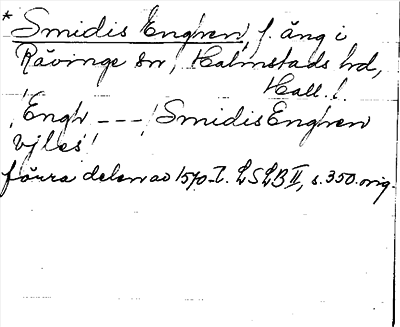 * Smidis Enghen, f. äng i
Rävinge sn, Halmstads hd,
Hall. l.
'Engh --- Smidis Enghen
vjles'
förra delen av 1570-t. LSLB II, s. 350. orig.